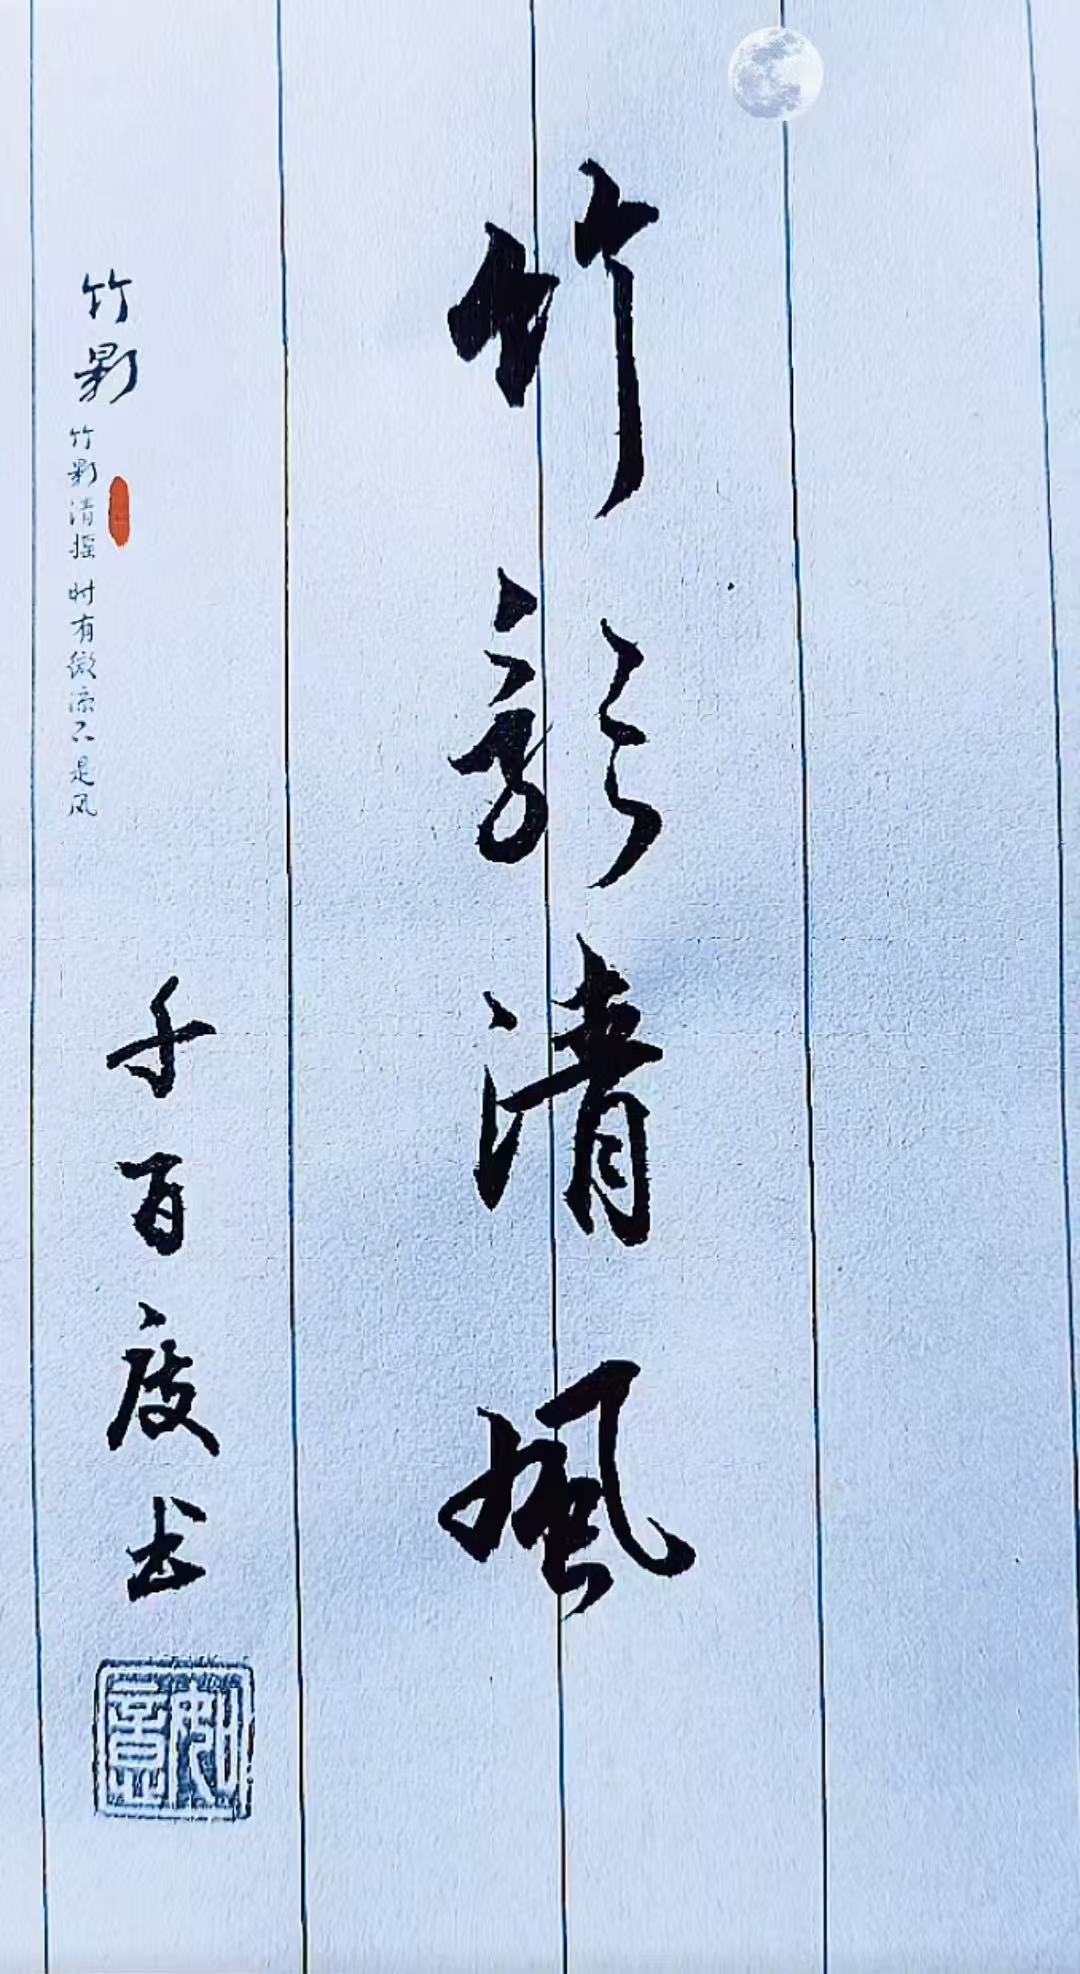 竹影清風
竹影
竹影清摇 时有微凉不是风
千百度书